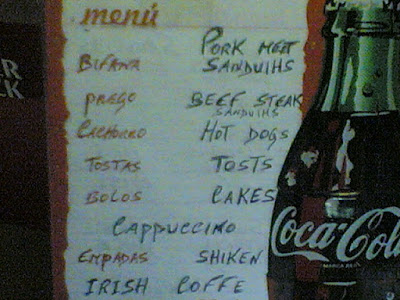 menú
PORK MEET
BIFANA SANDUIHS
PREGO BEEF STEAK
SANDUIHS
CACHORRO HOT DOGS
TOSTAS TOSTS
BOLOS CAKES
CAPPUCCINO
EMPADAS SHIKEN
IRISH COFFE
Coca-Cola
MARCA REG.